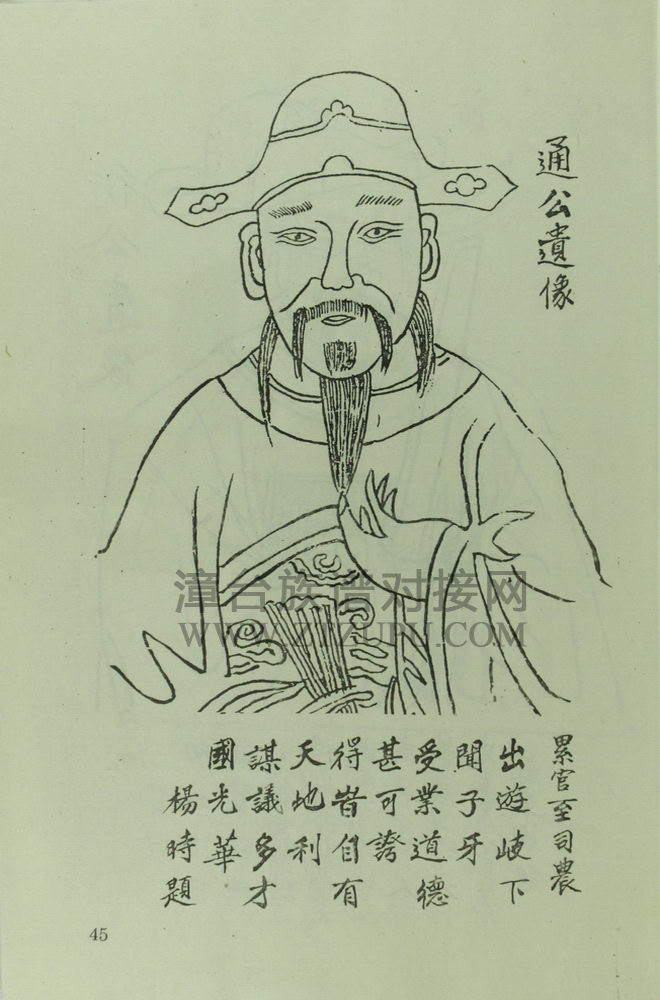 通公遺像
累官至司農
出遊岐下
聞子牙
受業道德
甚可誇
得皆自有
天地利
謀議多才
國光華
楊時題
漳台族谱对接网
WWW.ZTZUPU.COM
45